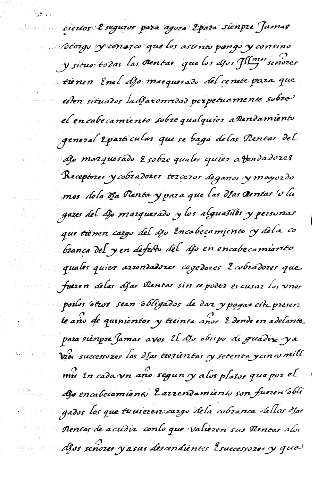 ciertos E seguros para agora E para siempre Jamas
otorgo y conozco que los asiento pongo y consino
y situo todas las Rentas que los dhos Illmos señores
tienen En el dho marquesado del cenete para que
esten situados la dha cantidad perpetuamente sobre
el encabeçamiento sobre qualquier aRendamiento
general E particular que se haga de las Rentas del
dho marquesado E sobre quales quier aRendadores
Receptores y cobradores terceros deganos y mayordo
mos de la dha Renta y para que las dhas Rentas o lu
gares del dho marquesado y los alguasiles y personas
que tienen cargo del dho Encabeçamiento y de la co
brança del y en defecto del dho en encabeçamiento
quales quier arrendadores cogedores E cobradores que
fueren de las dhas Rentas sin se poder escusar los unos
por los otros sean obligados de dar y pagar este presen
te año de quinientos y treinta años E dende en adelante
para siempre Jamas a vos El dho obispo de guadix y a
vros successores los dhos trezientas y setenta y cinco mill
mrs En cada un año segun y a los plazos que por el
dho encabeçamiento E arrendamiento son fueren obli
gados los que tuvieren cargo de la cobrança de llos dhas
Rentas de acudir con lo que valieren sus Rentas a los
dhos señores y a sus descendientes E successores y que